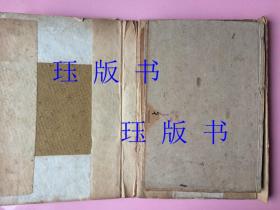 珏版书
珏版书